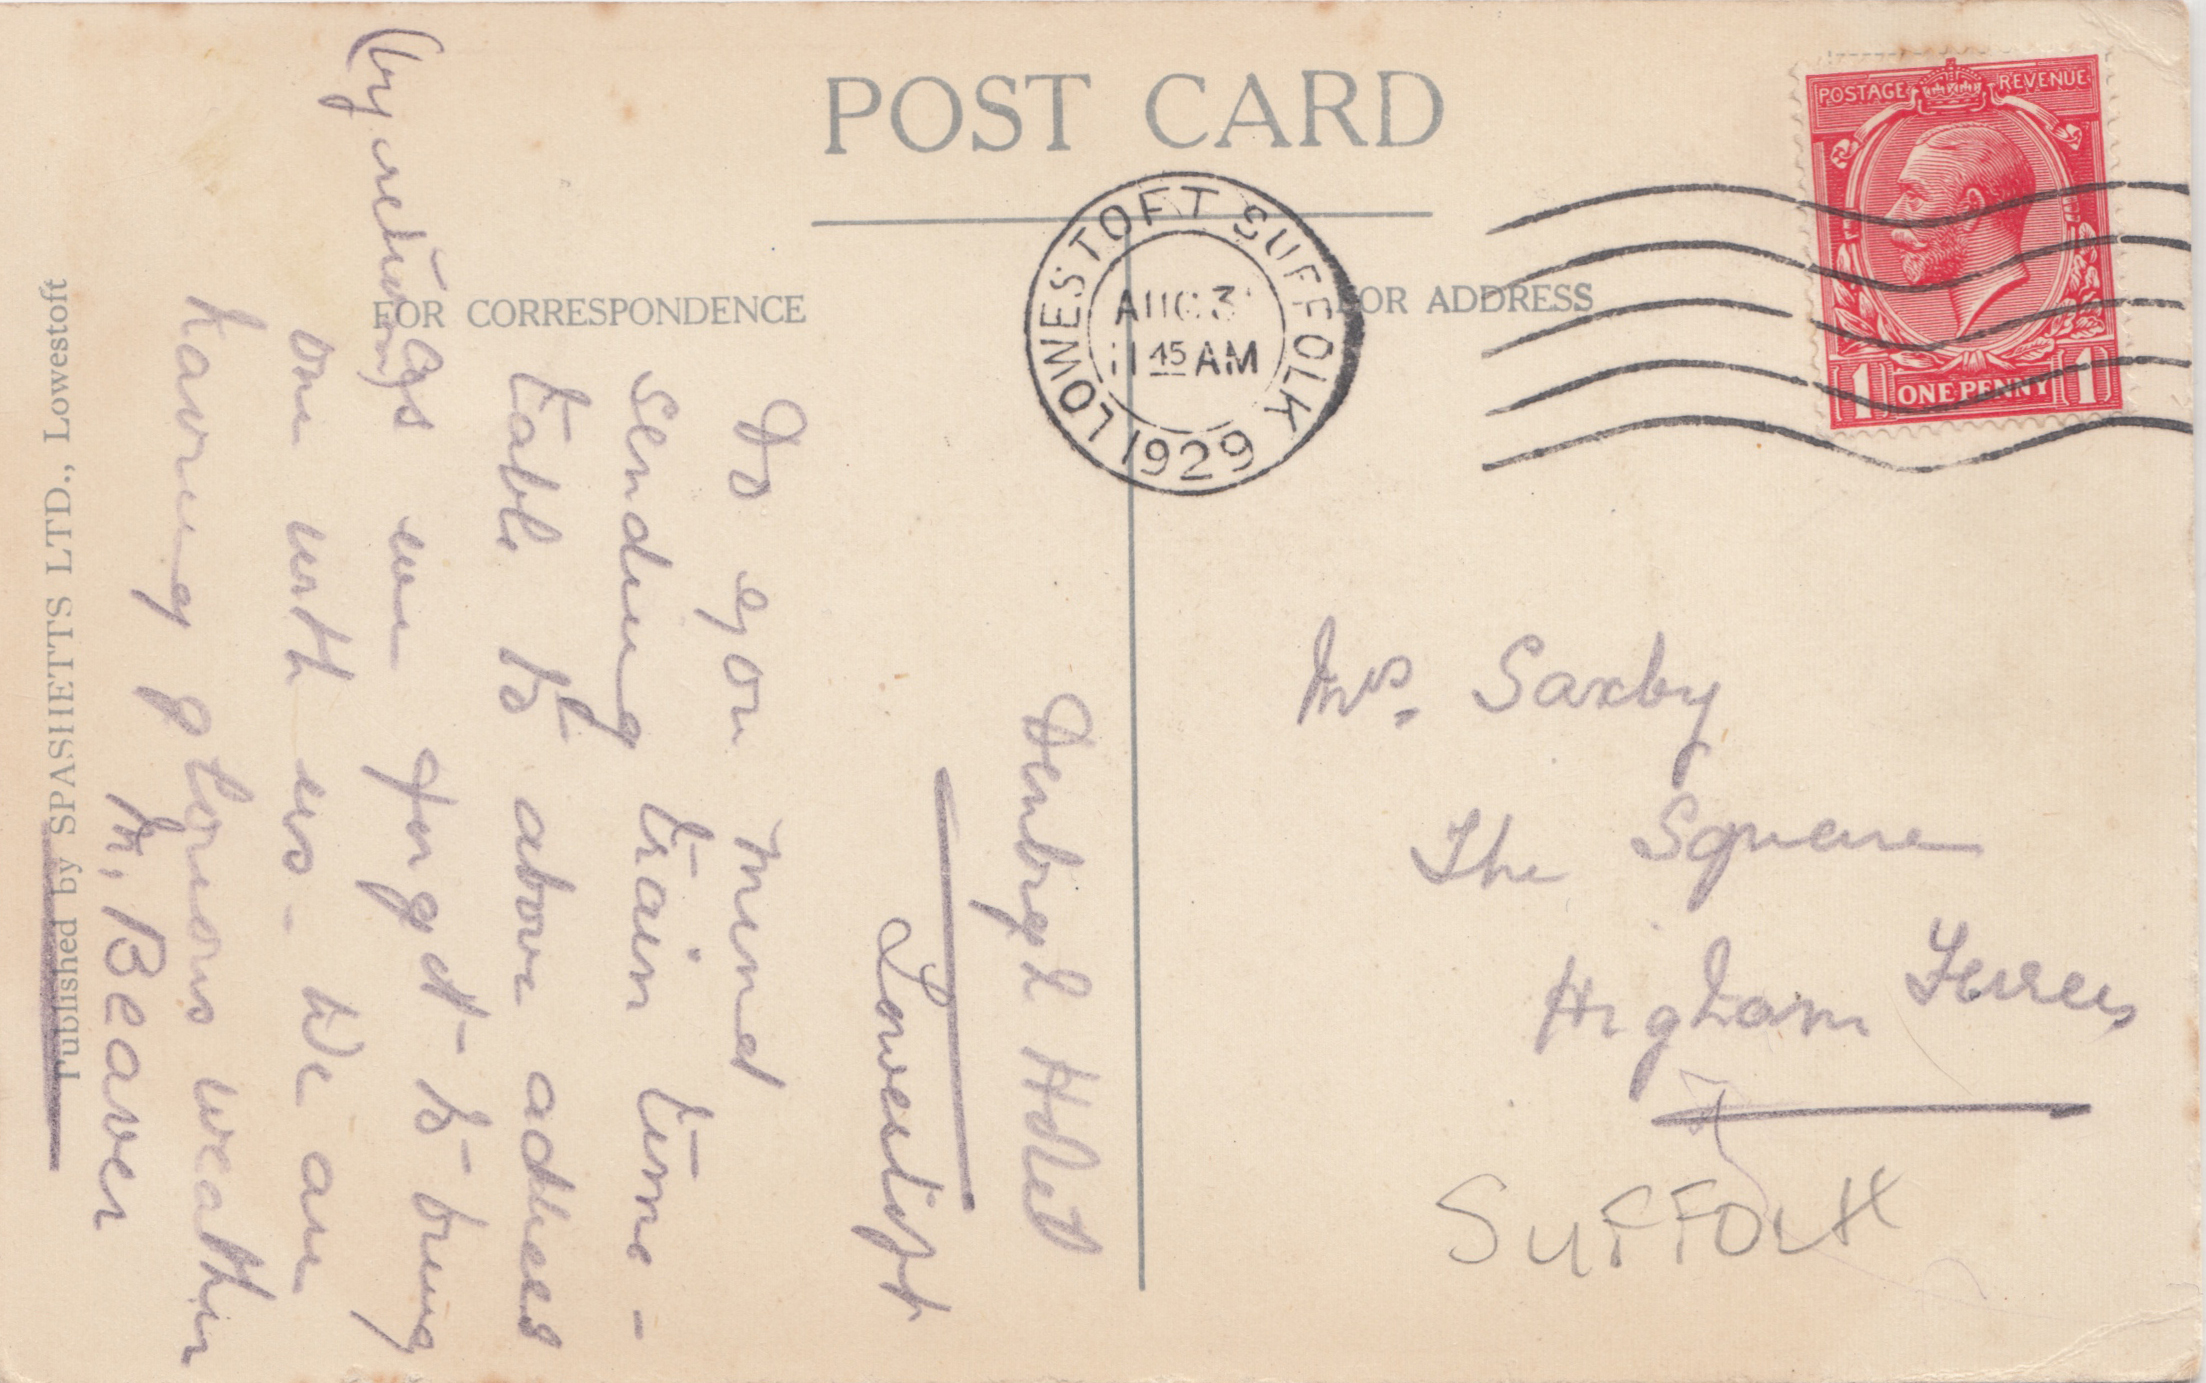 POST CARD
FOR CORRESPONDENCE
FOR ADDRESS
LOWESTOFT SUFFOLK
AUG 3
11 45 AM
1929
POSTAGE REVENUE
1 ONE PENNY 1
Denbigh Hotel
Lowestoft
Do you mind
sending train time-
table to above address
(by return) as we forgot to bring
one with us. We are
having glorious weather
M. Beaver
Mrs. Saxby
The Square
Higham Ferrers
SUFFOLK
Published by SPASHETTS LTD., Lowestoft